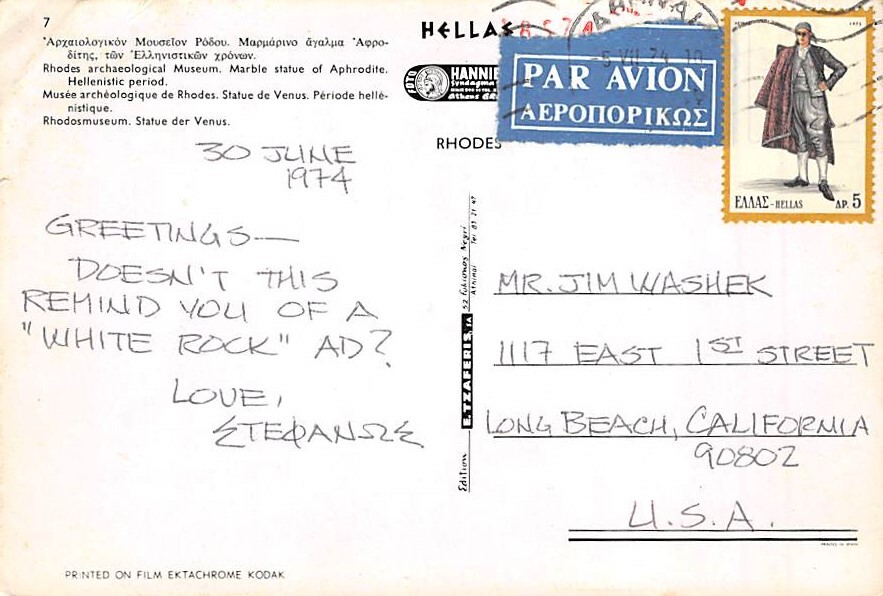 7
Ἀρχαιολογικόν Μουσεῖον Ρόδου. Μαρμάρινο ἄγαλμα Ἀφρο-
δίτης, τῶν Ἑλληνιστικῶν χρόνων.
Rhodes archaeological Museum. Marble statue of Aphrodite.
Hellenistic period.
Musée archéologique de Rhodes. Statue de Venus. Période hellé-
nistique.
Rhodosmuseum. Statue der Venus.
HELLAS
FOTO
HANNIE
Syndagma
Athens
RHODES
PAR AVION
ΑΕΡΟΠΟΡΙΚΩΣ
5 VII 74
ΕΛΛΑΣ-HELLAS ΔΡ. 5
30 JUNE
1974
GREETINGS—
DOESN'T THIS
REMIND YOU OF A
"WHITE ROCK" AD?
LOVE,
ΣΤΕΦΑΝΩΣ
Edition E.TZAFERIS.SA
52 Fokionos Negri
Athinai Tel
MR. JIM WASHEK
1117 EAST 1ST STREET
LONG BEACH, CALIFORNIA
90802
U.S.A.
PRINTED ON FILM EKTACHROME KODAK